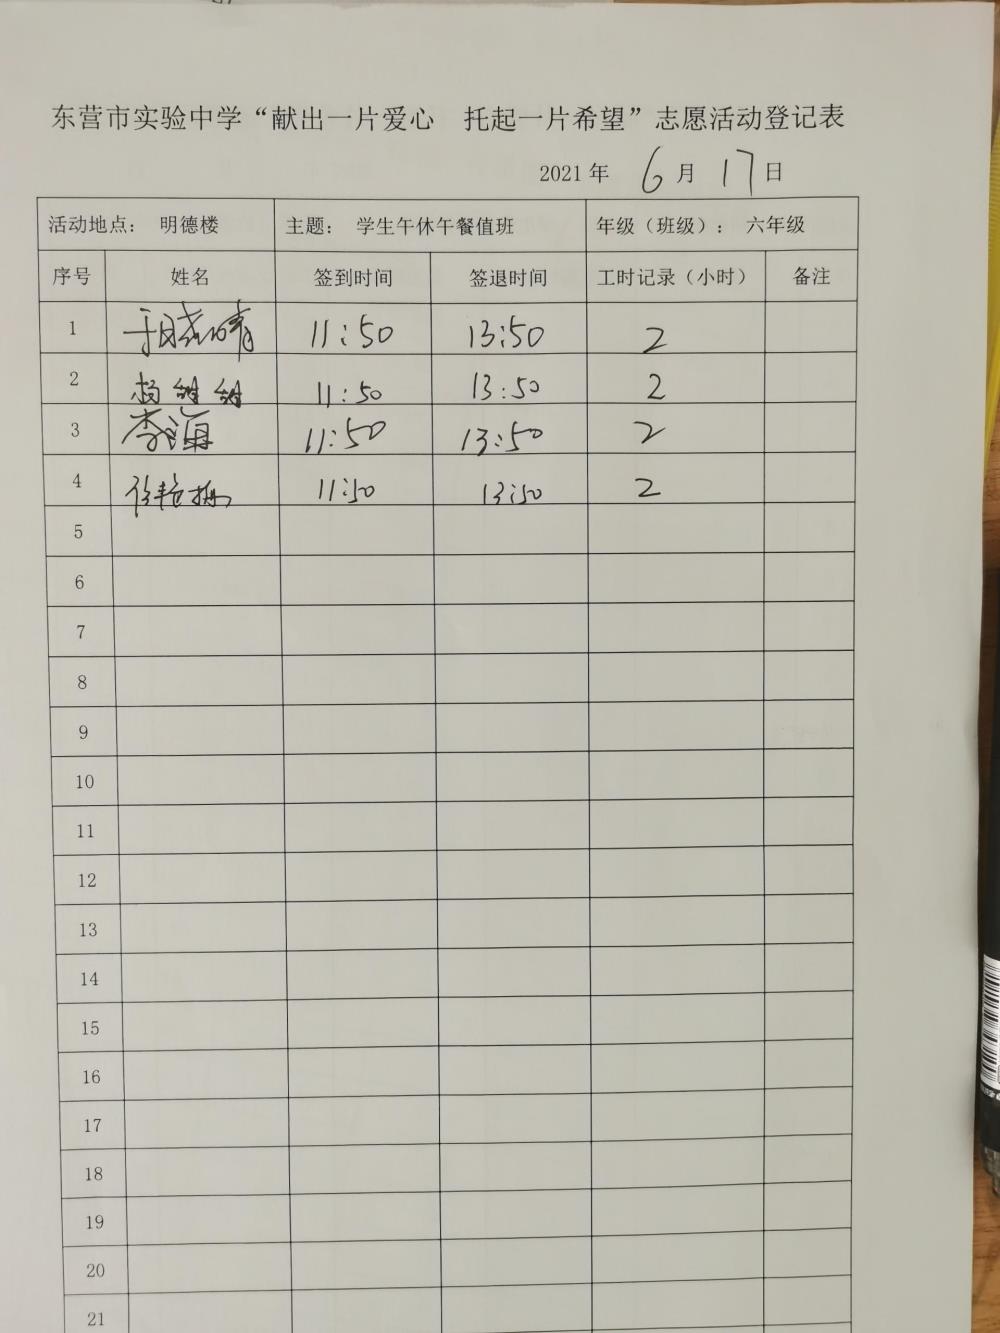 东营市实验中学“献出一片爱心 托起一片希望”志愿活动登记表
2021 年 6 月 17 日
活动地点： 明德楼 主题： 学生午休午餐值班 年级（班级）： 六年级
序号 姓名 签到时间 签退时间 工时记录（小时） 备注
1 于晓晴 11:50 13:50 2
2 杨甜甜 11:50 13:50 2
3 李海 11:50 13:50 2
4 徐艳梅 11:50 13:50 2
5
6
7
8
9
10
11
12
13
14
15
16
17
18
19
20
21